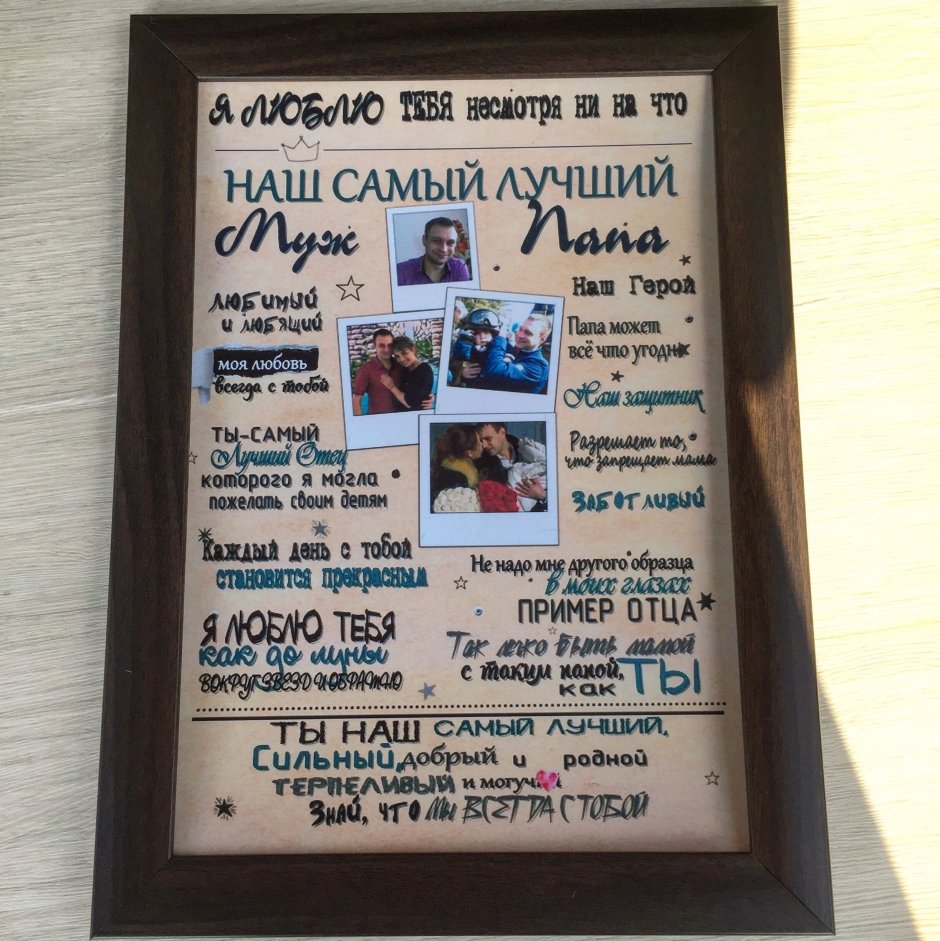 Я ЛЮБЛЮ ТЕБЯ несмотря ни на что
НАШ САМЫЙ ЛУЧШИЙ
Муж
Папа
ЛЮБИМЫЙ
И ЛЮБЯЩИЙ
моя любовь
всегда с тобой
ТЫ-САМЫЙ
Лучший Отец
которого я могла
пожелать своим детям
Каждый день с тобой
становится прекрасным
Я ЛЮБЛЮ ТЕБЯ
как до луны
ВОКРУГ ЗВЕЗД И ОБРАТНО
Наш Герой
Папа может
всё что угодно
Наш защитник
Разрешает то,
что запрещает мама
ЗАБОТЛИВЫЙ
Не надо мне другого образца
в моих глазах
ПРИМЕР ОТЦА
Так легко быть мамой
с таким папой,
как ТЫ
ТЫ НАШ САМЫЙ ЛУЧШИЙ,
Сильный, добрый и родной
ТЕРПЕЛИВЫЙ и могучий
Знай, что Мы ВСЕГДА С ТОБОЙ